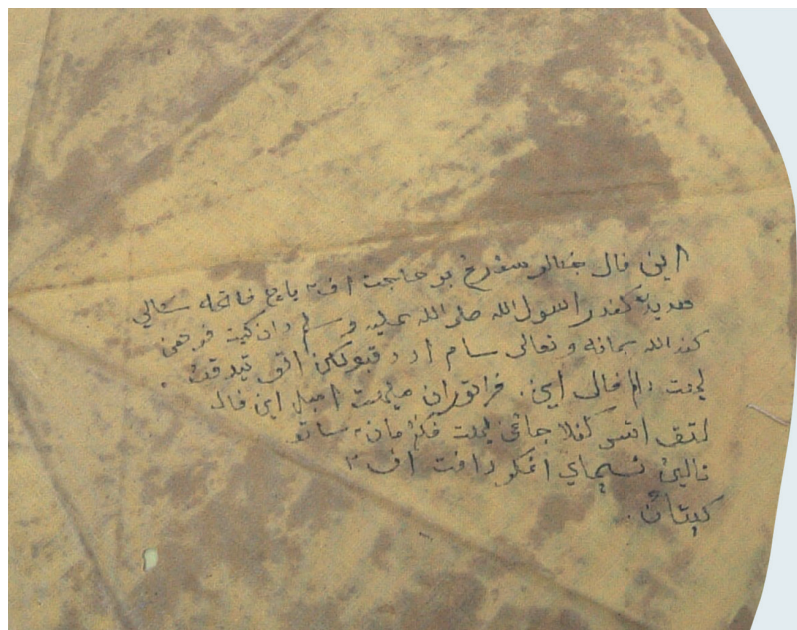 اين فال جکالو سئورڠ بر حاجت اف٢ باچ فاتحه سکالي
هديه کفد رسول الله صلى الله عليه وسلم دان کيت فوهن
کفد الله سبحانه وتعالى سام اد دقبولکن اتو تيدقڽ .
ليهت دالم فال اين . فراتوران مليهت امبيل اين فال
لتق اتس کفلا جاڠن ليهت فگڠ مان٢ ساتو
تاليڽ نسچاي اڠکو دافت اف٢
کتاڽ .